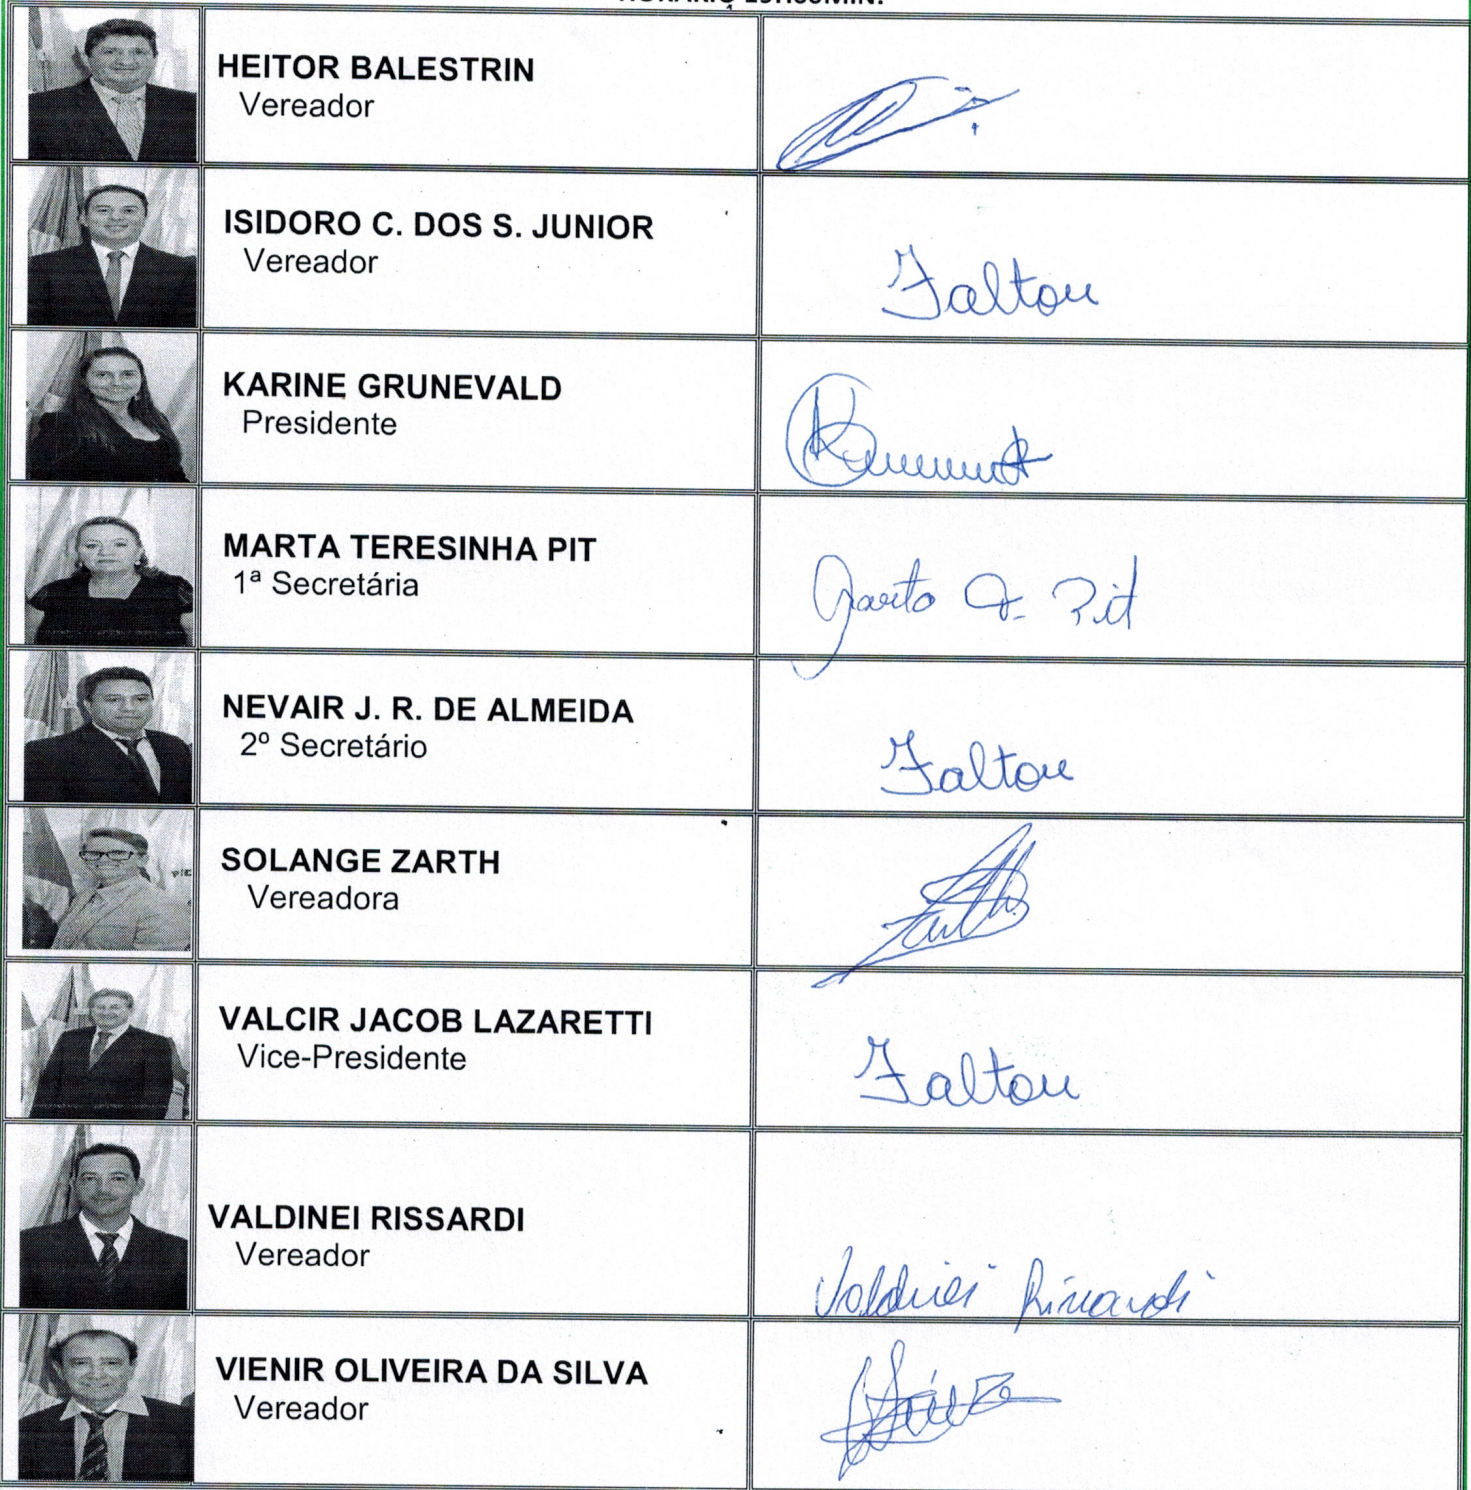 HEITOR BALESTRIN
Vereador
ISIDORO C. DOS S. JUNIOR
Vereador
Faltou
KARINE GRUNEVALD
Presidente
MARTA TERESINHA PIT
1ª Secretária
Marta T. Pit
NEVAIR J. R. DE ALMEIDA
2º Secretário
Faltou
SOLANGE ZARTH
Vereadora
VALCIR JACOB LAZARETTI
Vice-Presidente
Faltou
VALDINEI RISSARDI
Vereador
Valdinei Rissardi
VIENIR OLIVEIRA DA SILVA
Vereador